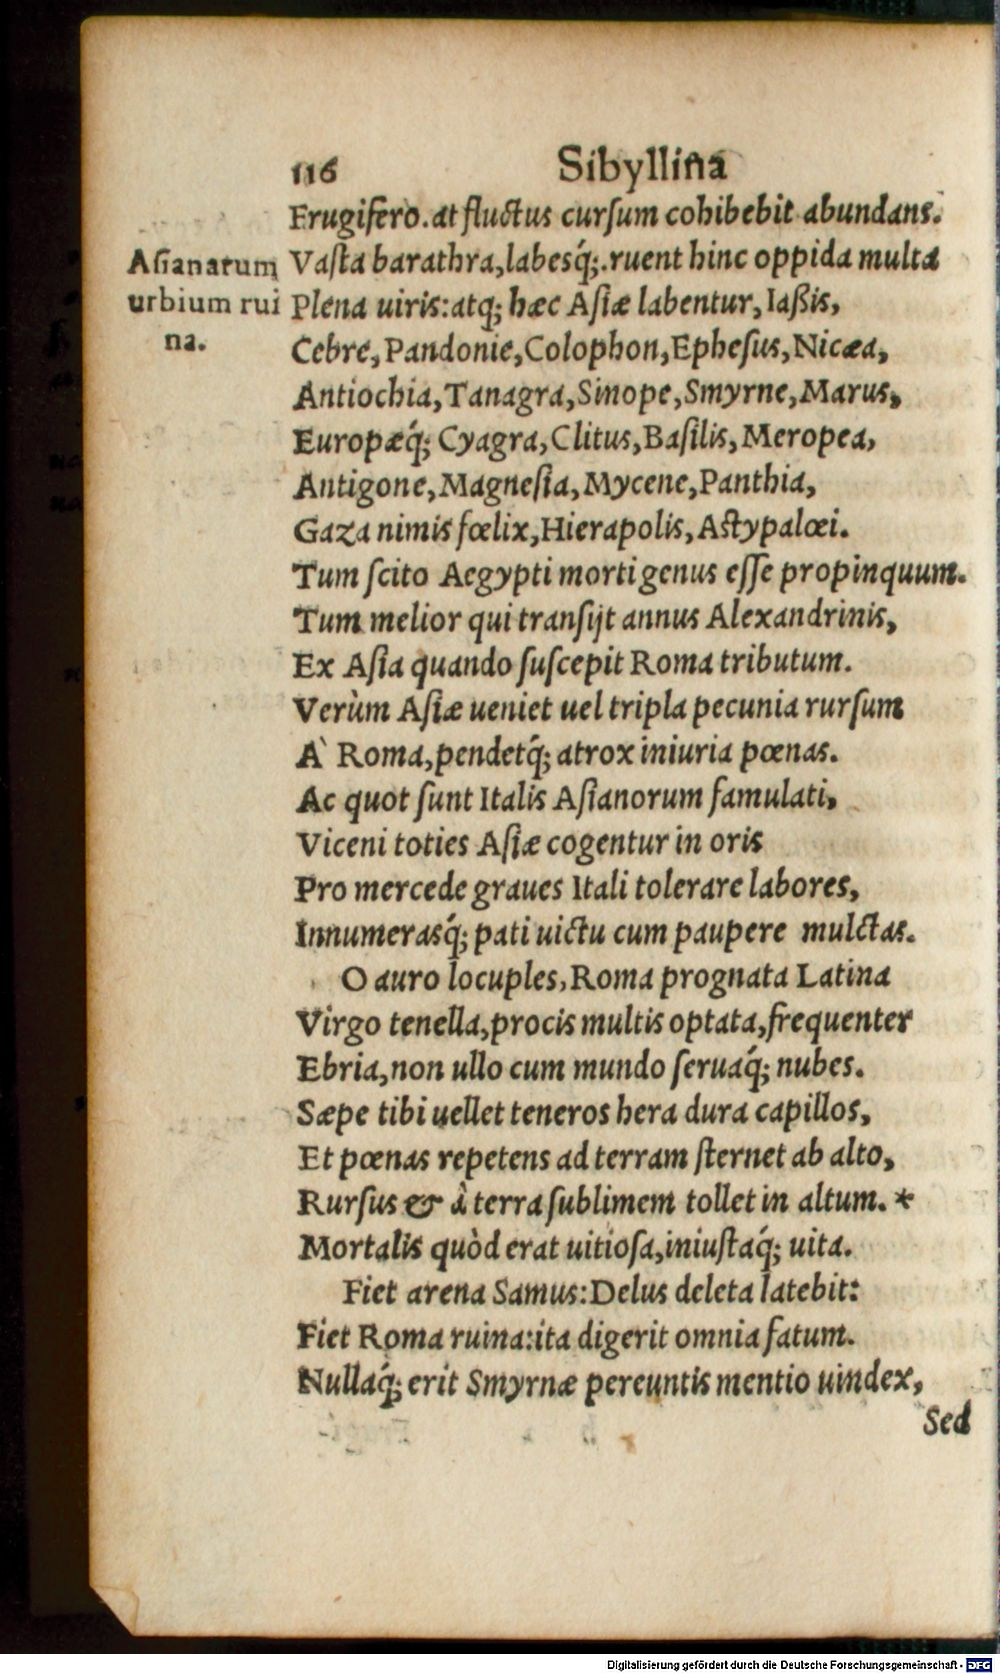 116 Sibyllina
Frugifero. at fluctus cursum cohibebit abundans.
Asianarum
urbium rui
na.
Vasta barathra, labesq́;. ruent hinc oppida multa
Plena uiris: atq; hæc Asiæ labentur, Iaßis,
Cebre, Pandonie, Colophon, Ephesus, Nicæa,
Antiochia, Tanagra, Sinope, Smyrne, Marus,
Europæq́; Cyagra, Clitus, Basilis, Meropea,
Antigone, Magnesia, Mycene, Panthia,
Gaza nimis fœlix, Hierapolis, Astypalœi.
Tum scito Aegypti morti genus esse propinquum.
Tum melior qui transijt annus Alexandrinis,
Ex Asia quando suscepit Roma tributum.
Verùm Asiæ ueniet uel tripla pecunia rursum
À Roma, pendetq́; atrox iniuria pœnas.
Ac quot sunt Italis Asianorum famulati,
Viceni toties Asiæ cogentur in oris
Pro mercede graues Itali tolerare labores,
Innumerasq́; pati uictu cum paupere mulctas.
O auro locuples, Roma prognata Latina
Virgo tenella, procis multis optata, frequenter
Ebria, non ullo cum mundo seruaq́; nubes.
Sæpe tibi uellet teneros hera dura capillos,
Et pœnas repetens ad terram sternet ab alto,
Rursus & à terra sublimem tollet in altum. *
Mortalis quòd erat uitiosa, iniustaq́; uita.
Fiet arena Samus: Delus deleta latebit:
Fiet Roma ruina: ita digerit omnia fatum.
Nullaq́; erit Smyrnæ pereuntis mentio uindex,
Sed
Digitalisierung gefördert durch die Deutsche Forschungsgemeinschaft - DFG